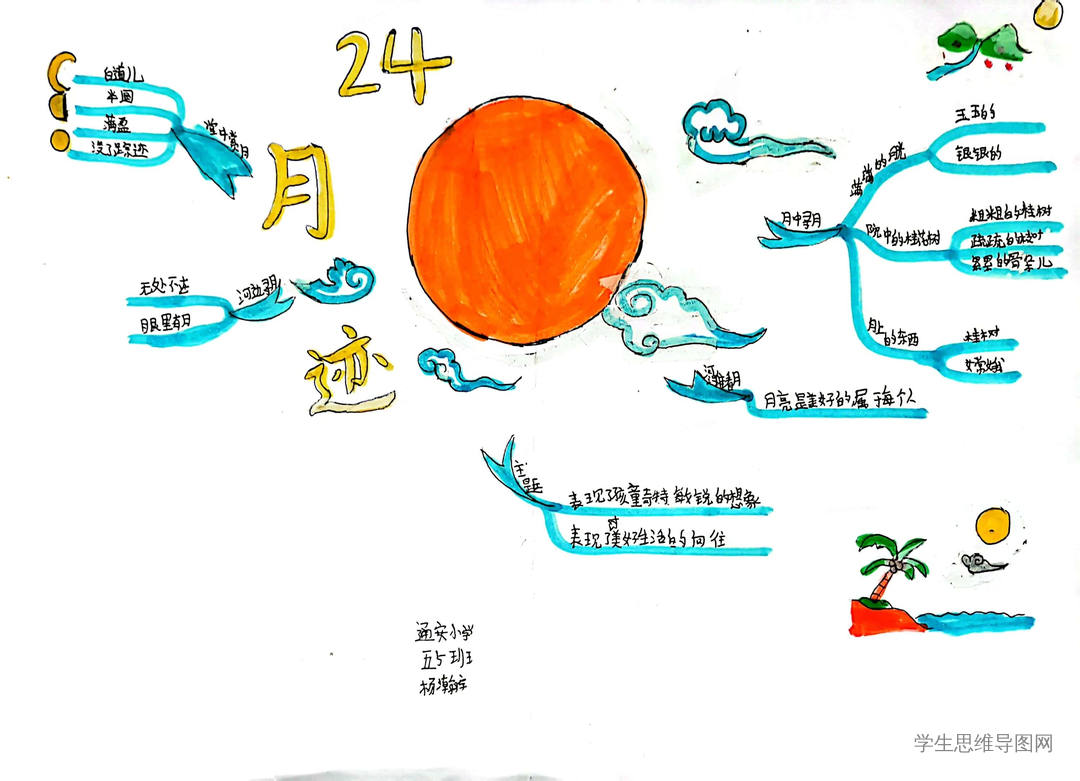 24
月
迹
堂中寻月
白道儿
半圆
满盈
没了踪迹
河边寻月
无处不在
眼里有月
月中寻月
满满的月光
玉玉的
银银的
院中的桂花树
粗粗的桂树
疏疏的枝叶
累累的骨朵儿
月上的东西
桂树
嫦娥
河滩寻月
月亮是美好的属于每个人
主题
表现了孩童奇特敏锐的想象
表现了对美好生活的向往
通安小学
五5班
学生思维导图网